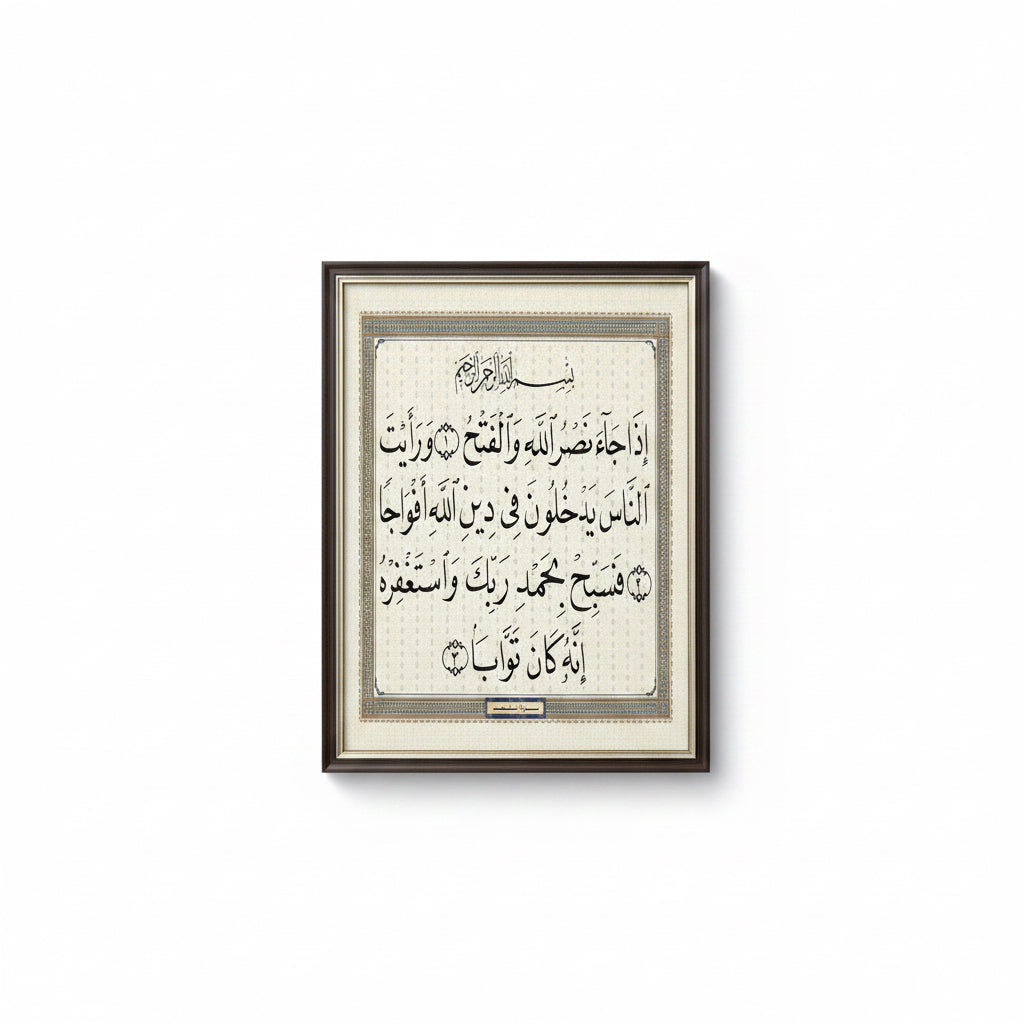 بِسْمِ ٱللَّهِ ٱلرَّحْمَٰنِ ٱلرَّحِيمِ
إِذَا جَآءَ نَصْرُ ٱللَّهِ وَٱلْفَتْحُ ١ وَرَأَيْتَ
ٱلنَّاسَ يَدْخُلُونَ فِى دِينِ ٱللَّهِ أَفْوَاجًا
٢ فَسَبِّحْ بِحَمْدِ رَبِّكَ وَٱسْتَغْفِرْهُ
إِنَّهُۥ كَانَ تَوَّابَۢا ٣